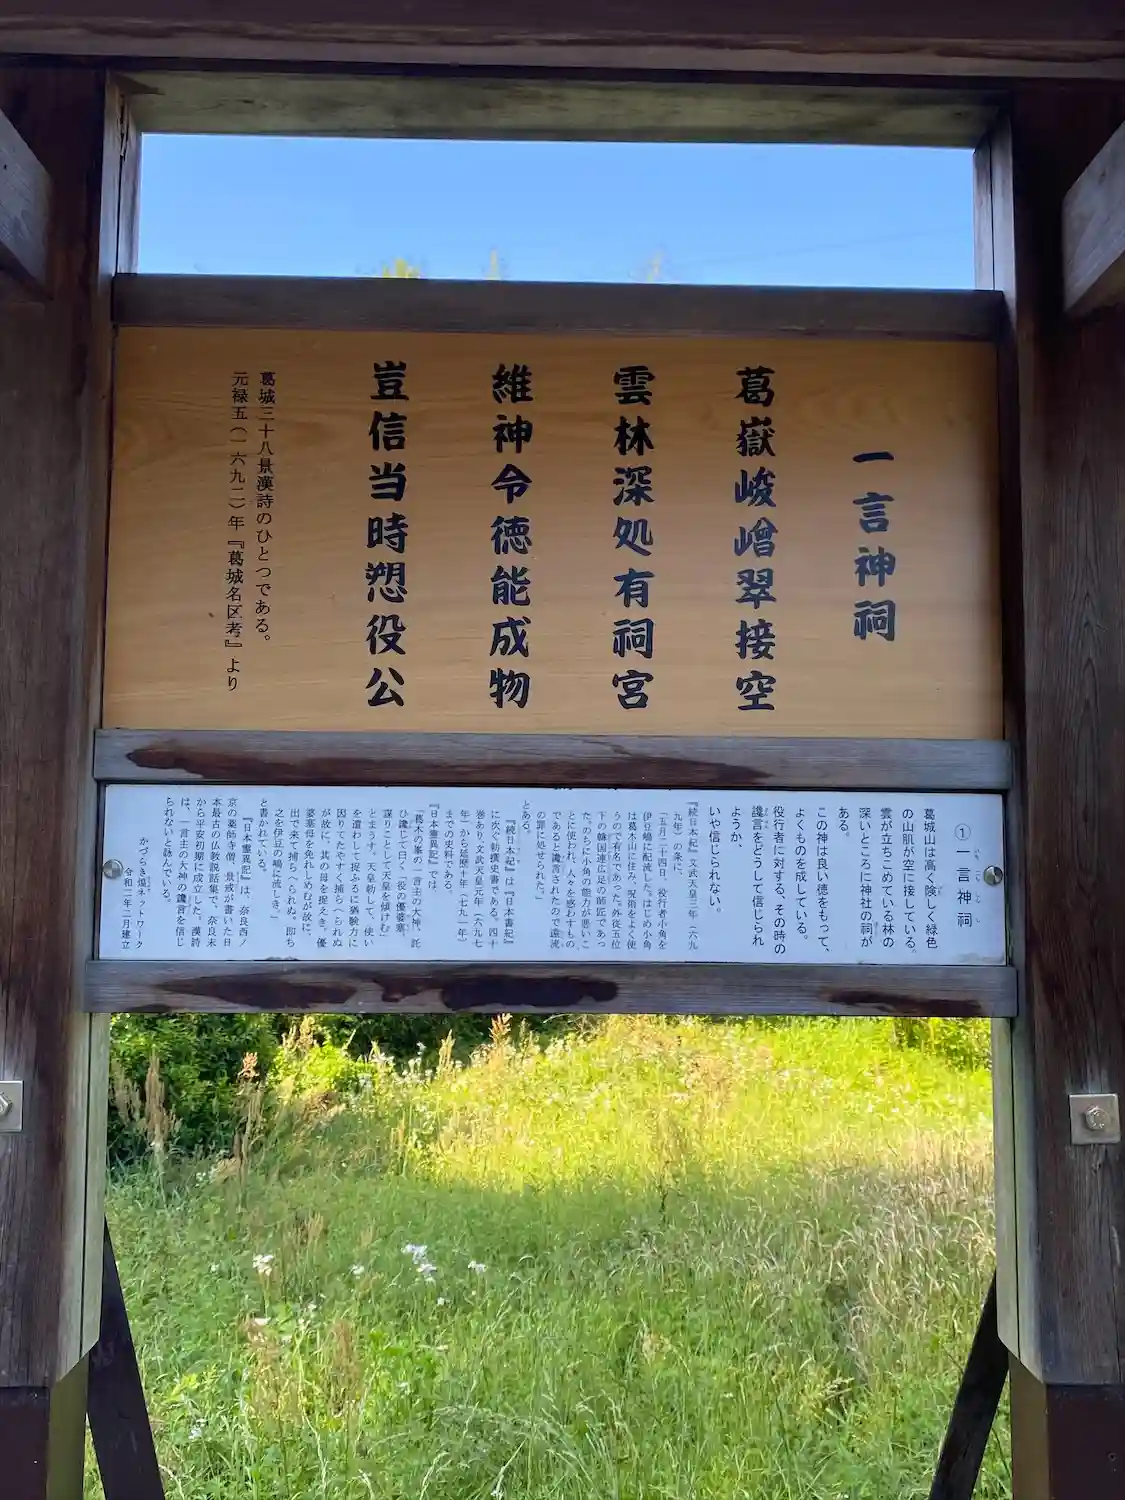 一言神祠
葛嶽峻嶒翠接空
雲林深処有祠宮
維神令徳能成物
豈信当時愬役公
葛城三十八景漢詩のひとつである。
元禄五(一六九二)年『葛城名区考』より
①一言神祠
葛城山は高く険しく緑色
の山肌が空に接している。
雲が立ちこめている林の
深いところに神社の祠が
ある。
この神は良い徳をもって、
よくものを成している。
役行者に対する、その時の
讒言をどうして信じられ
ようか、
いや信じられない。
『続日本紀』文武天皇三年(六九
九年)の条に、
「五月二十四日、役行者小角を
伊豆嶋に配流した。はじめ小角
は葛木山に住み、呪術をよく使
うので有名であった。外従五位
下の韓国連広足の師匠であっ
た。のちに小角の能力が悪いこ
とに使われ、人々を惑わすもの
であると讒言されたので遠流
の罪に処せられた。」
とある。
『続日本紀』は『日本書紀』
に次ぐ勅撰史書である。四十
巻あり、文武天皇元年(六九七
年)から延暦十年(七九一年)
までの史料である。
『日本霊異記』では、
「葛木の峯の一言主の大神、託
ひ讒して曰く、役の優婆塞、
謀りごとして天皇を傾けむ」
とまうす。天皇勅して、使い
を遣わして捉ふるに猶験力に
因りてたやすく捕らへられぬ
が故に、其の母を捉えき。優
婆塞母を免れしめむが故に、
出で来て捕らへられぬ。即ち
之を伊豆の嶋に流しき」
と書かれている。
『日本霊異記』は、奈良西ノ
京の薬師寺僧、景戒が書いた日
本最古の仏教説話集で、奈良末
から平安初期に成立した。漢詩
は、一言主の大神の讒言を信じ
られないと詠んでいる。
かづらき煌ネットワーク
令和二年二月建立